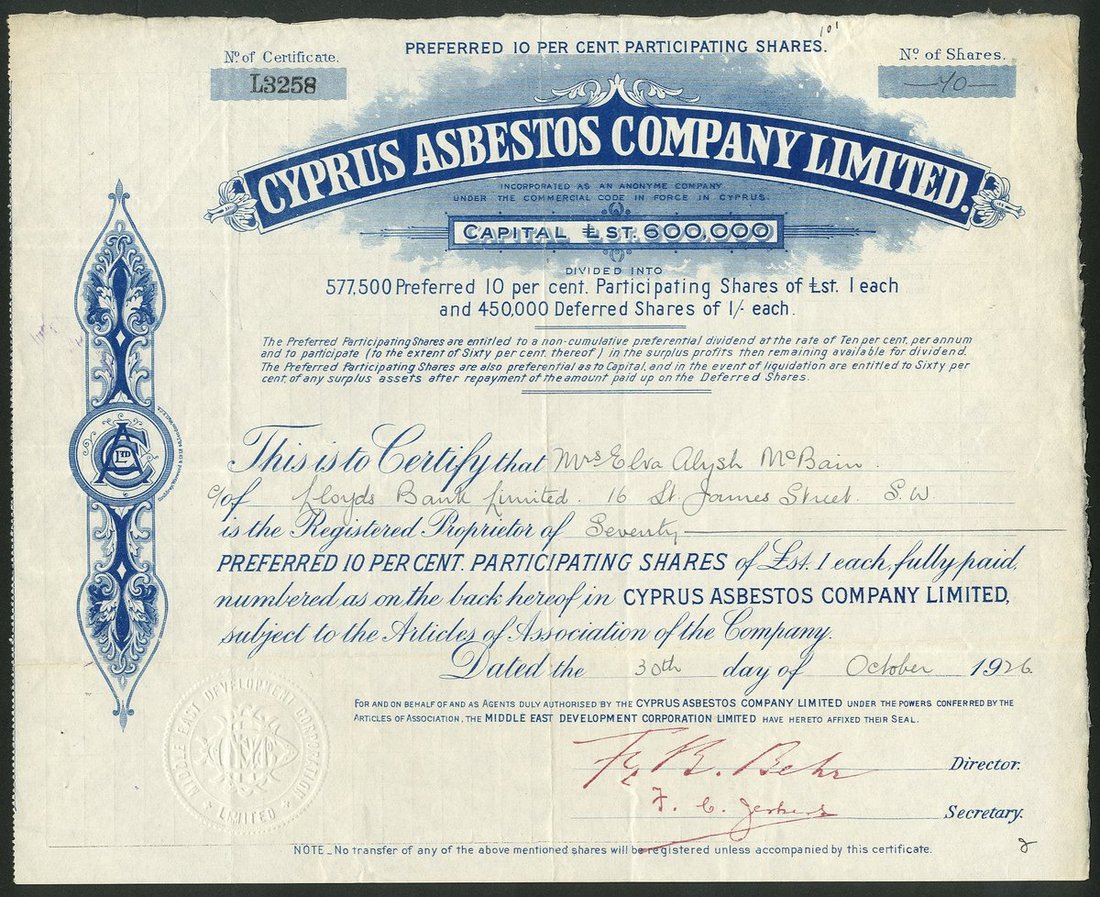 101
PREFERRED 10 PER CENT. PARTICIPATING SHARES.
No. of Certificate.
L3258
No. of Shares.
70
CYPRUS ASBESTOS COMPANY LIMITED.
INCORPORATED AS AN ANONYME COMPANY
UNDER THE COMMERCIAL CODE IN FORCE IN CYPRUS.
CAPITAL £ST. 600,000
DIVIDED INTO
577,500 Preferred 10 per cent. Participating Shares of £st. 1 each
and 450,000 Deferred Shares of 1/- each.
The Preferred Participating Shares are entitled to a non-cumulative preferential dividend at the rate of Ten per cent. per annum
and to participate (to the extent of Sixty per cent. thereof) in the surplus profits then remaining available for dividend.
The Preferred Participating Shares are also preferential as to Capital, and in the event of liquidation are entitled to Sixty per
cent. of any surplus assets after repayment of the amount paid up on the Deferred Shares.
CA LTD
This is to Certify that Mrs Elva Alysh McBain.
c/o of Lloyds Bank Limited. 16 St. James Street. S.W.
is the Registered Proprietor of Seventy
PREFERRED 10 PER CENT. PARTICIPATING SHARES of £st. 1 each, fully paid,
numbered as on the back hereof in CYPRUS ASBESTOS COMPANY LIMITED,
subject to the Articles of Association of the Company.
Dated the 30th day of October 1926.
FOR AND ON BEHALF OF AND AS AGENTS DULY AUTHORISED BY THE CYPRUS ASBESTOS COMPANY LIMITED UNDER THE POWERS CONFERRED BY THE
ARTICLES OF ASSOCIATION, THE MIDDLE EAST DEVELOPMENT CORPORATION LIMITED HAVE HERETO AFFIXED THEIR SEAL.
MIDDLE EAST DEVELOPMENT CORPORATION
LIMITED
Behr
Director.
F. C.
Secretary.
NOTE _ No transfer of any of the above mentioned shares will be registered unless accompanied by this certificate.
2